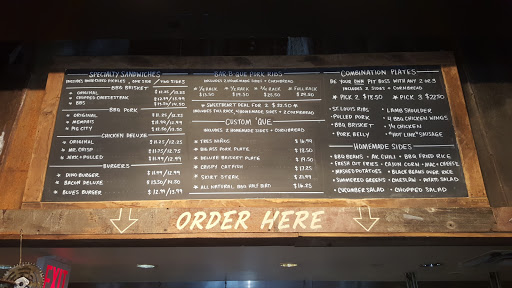 SPECIALTY SANDWICHES
INCLUDES HOMEMADE PICKLES, ONE SIDE / TWO SIDES
BBQ BRISKET
★ ORIGINAL
★ CHOPPED CHEESESTEAK $12.99/13.99
★ BBS
BBQ PORK
★ ORIGINAL
★ MEMPHIS
★ PIG CITY $11.50/12.50
CHICKEN DELUXE
★ ORIGINAL $11.75/12.75
★ MR. CRISP $11.75/12.75
★ JERK + PULLED $11.99/12.99
BURGERS
★ DINO BURGER $11.99/12.99
★ BACON DELUXE $13.50/14.50
★ BLUES BURGER $12.99/13.99
BAR-B-QUE PORK RIBS
INCLUDES 2 HOMEMADE SIDES + CORNBREAD
★ 1/4 RACK ★ 1/2 RACK ★ 3/4 RACK ★ FULL RACK
★ SWEETHEART DEAL FOR 2 $32.50 ★
INCLUDES FULL RACK + HOMEMADE SIDES + 2 CORNBREAD
CUSTOM 'QUE
INCLUDES 2 HOMEMADE SIDES + CORNBREAD
★ TRES NIÑOS $16.99
★ BIG ASS PORK PLATE $18.50
★ DELUXE BRISKET PLATE $19.50
★ CRISPY CATFISH $17.25
★ SKIRT STEAK $21.99
★ ALL NATURAL BBQ HALF BIRD $16.25
COMBINATION PLATES
BE YOUR OWN PIT BOSS WITH ANY 2 OR 3
INCLUDES 2 SIDES + CORNBREAD
★ PICK 2 $19.50 ★ PICK 3 $22.50
• ST. LOUIS RIBS • LAMB SHOULDER
• PULLED PORK • 4 BBQ CHICKEN WINGS
• BBQ BRISKET • 1/4 CHICKEN
• PORK BELLY • "HOT LINK" SAUSAGE
HOMEMADE SIDES
• BBQ BEANS • AK CHILI • BBQ FRIED RICE
• FRESH CUT FRIES • CAJUN CORN • MAC + CHEESE
• MASHED POTATOES • BLACK BEANS OVER RICE
• SIMMERED GREENS • COLESLAW • POTATO SALAD
• CUCUMBER SALAD • CHOPPED SALAD
ORDER HERE